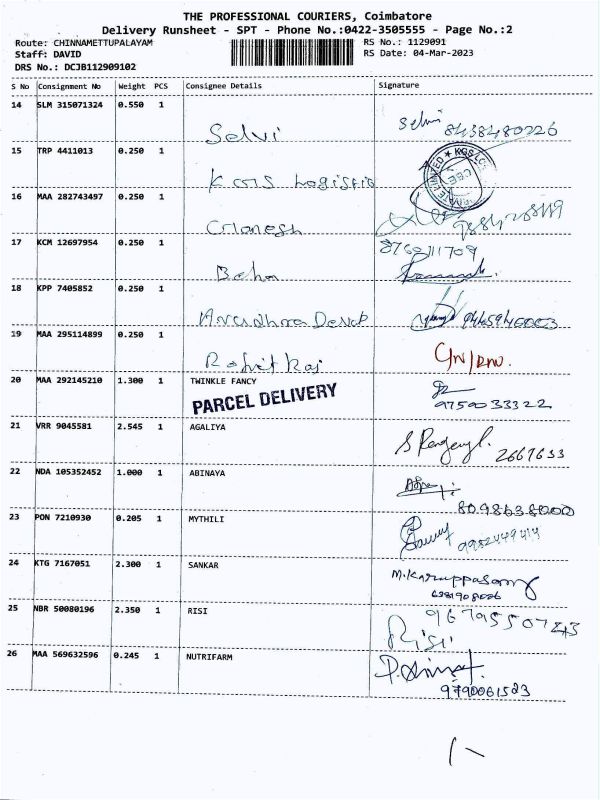 THE PROFESSIONAL COURIERS, Coimbatore
Delivery Runsheet - SPT - Phone No.:0422-3505555 - Page No.:2
Route: CHINNAMETTUPALAYAM
RS No.: 1129091
Staff: DAVID
RS Date: 04-Mar-2023
DRS No.: DCJB112909102
S No Consignment No Weight PCS Consignee Details Signature
14 SLM 315071324 0.550 1
Selvi Selvi 8438480226
15 TRP 4411013 0.250 1
KGS Logistic
16 MAA 282743497 0.250 1
Gianesh
17 KCM 12697954 0.250 1
Baha
18 KPP 7405852 0.250 1
9445946003
19 MAA 295114899 0.250 1
Rohit Raj
20 MAA 292145210 1.300 1 TWINKLE FANCY
PARCEL DELIVERY
9750033322
21 VRR 9045581 2.545 1 AGALIYA
2667633
22 NDA 105352452 1.000 1 ABINAYA
8098638000
23 PON 7210930 0.205 1 MYTHILI
9952449414
24 KTG 7167051 2.300 1 SANKAR
M.Karuppasamy
25 NBR 50080196 2.350 1 RISI
9679550743
Risi
26 MAA 569632596 0.245 1 NUTRIFARM
9790061523